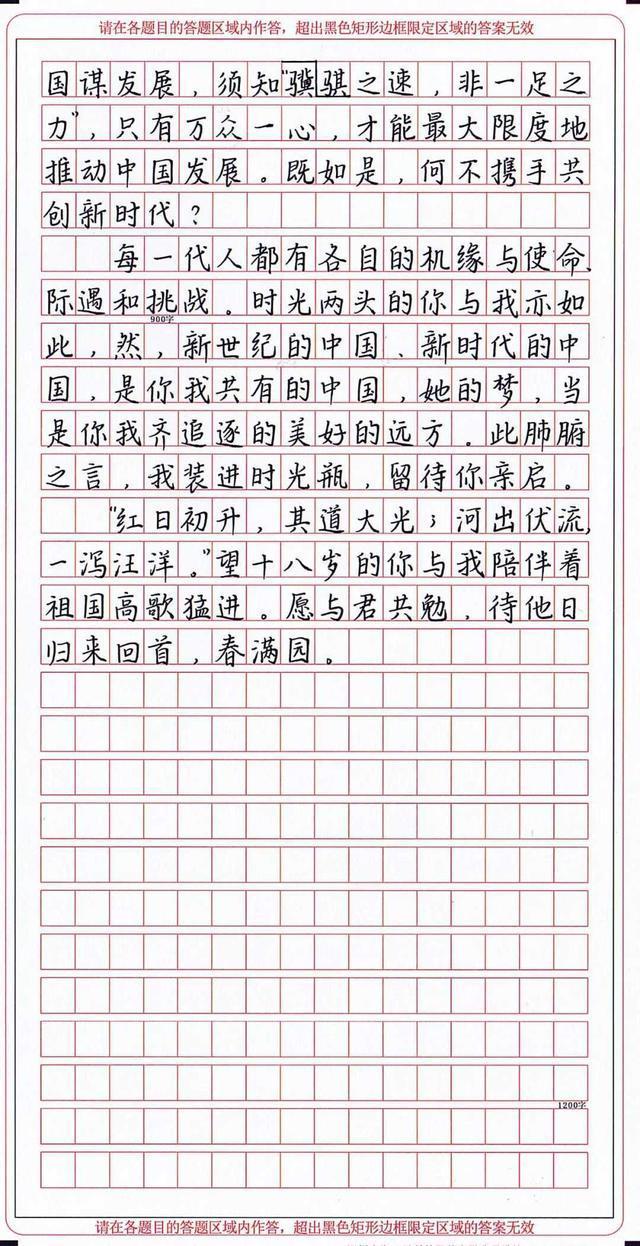 请在各题目的答题区域内作答，超出黑色矩形边框限定区域的答案无效
国谋发展，须知“骥骐之速，非一足之
力”，只有万众一心，才能最大限度地
推动中国发展。既如是，何不携手共
创新时代？
每一代人都有各自的机缘与使命、
际遇和挑战。时光两头的你与我亦如
900字
此，然，新世纪的中国、新时代的中
国，是你我共有的中国，她的梦，当
是你我齐追逐的美好的远方。此肺腑
之言，我装进时光瓶，留待你亲启。
“红日初升，其道大光；河出伏流，
一泻汪洋。”望十八岁的你与我陪伴着
祖国高歌猛进。愿与君共勉，待他日
归来回首，春满园。
1200字
请在各题目的答题区域内作答，超出黑色矩形边框限定区域的答案无效